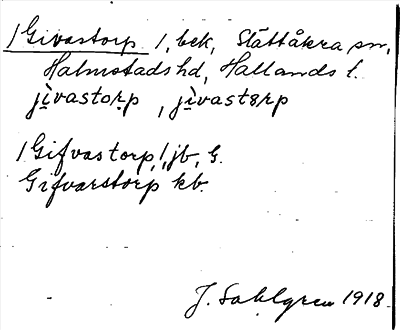 /Givastorp /, bek, Slättåkra sn,
Halmstads hd, Hallands l.
jìvastorp , jìvastɘrp
/Gifvastorp/, jb, G.
Gifvarstorp kb.
J. Sahlgren 1918